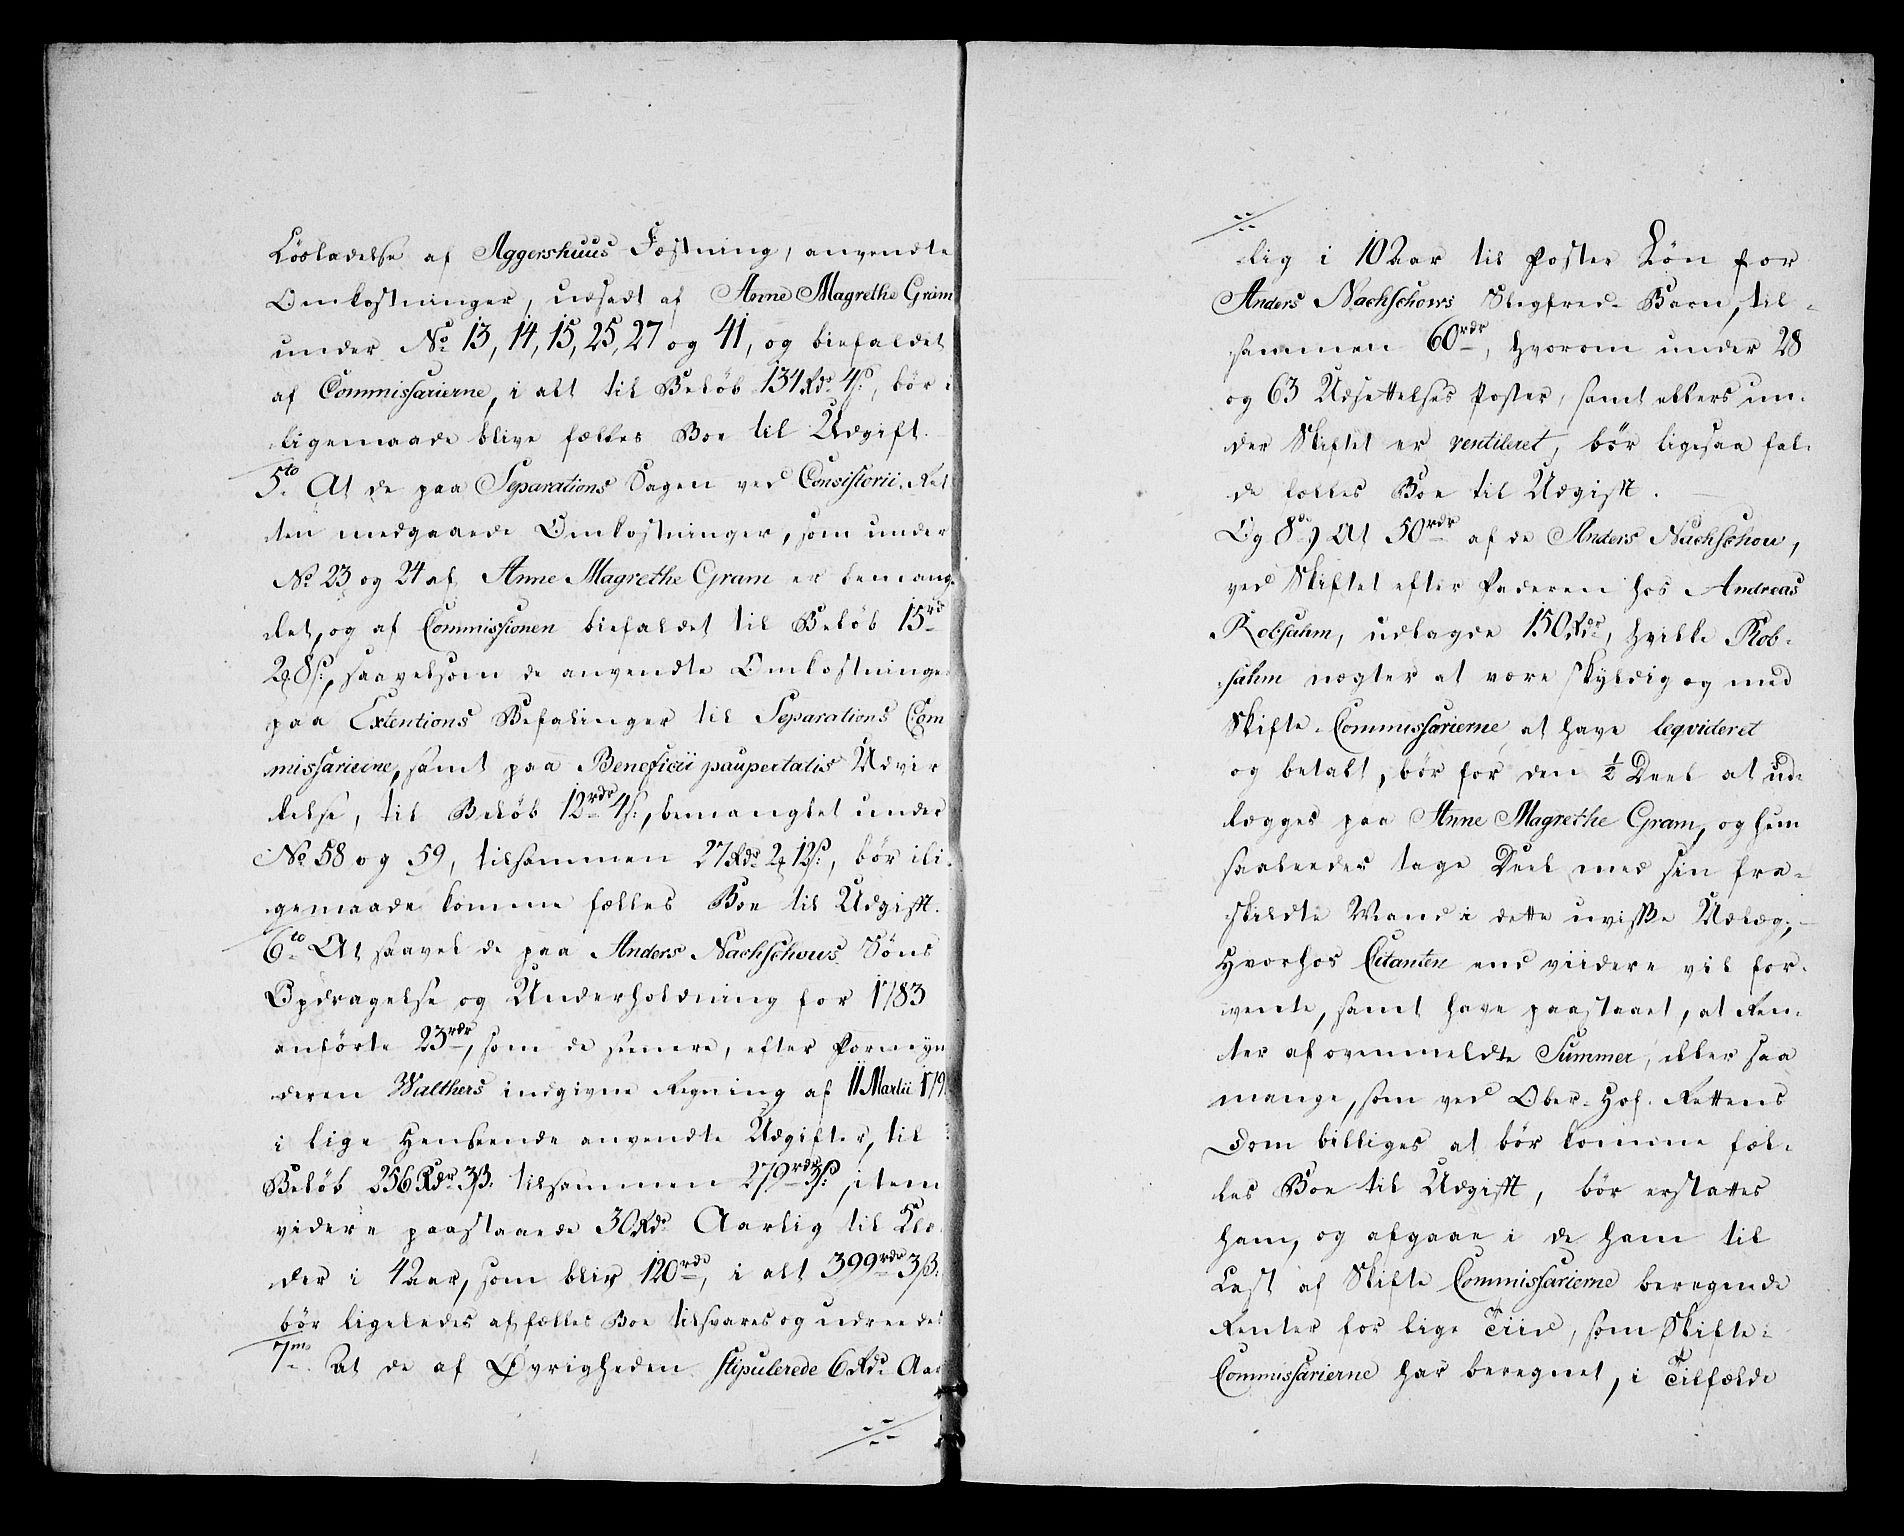 Lösladelse af Aggershuus Fæstning, anvendte
Omkostninger, udsadt af Anne Magrethe Gram
under No 13, 14, 15, 25, 27 og 41, og biefaldet
af Commissarierne, i alt til Beløb 134 Rdr 4s, bör i
ligemaade blive fælles Boe til Udgift.
5to At de paa Separations Sagen ved Consistorii Ret
ten medgaaede Omkostninger, som under
No 23 og 24 af Anne Magrethe Gram er bemang
let, og af Commissionen biefaldet til Beløb 15rd
2 8s, saavelsom de anvendte Omkostninge
paa Extentions Befalinger til Separations Com
missarierne, samt paa Beneficii paupertatis Udvir
kelse, til Beløb 12rdr 4s:, bemanglet under
No 58 og 59, tilsammen 27 Rdr 2 12s, bör ili
gemaade komme fælles Boe til Udgift.
6to At saavel de paa Anders Nachschows Söns
Opdragelse og Underholdning for 1783
anförte 23rdr, som de senere, efter Formyn
deren Walthers indgivne Regning af 11 Martii 179
i lige Henseende anvendte Udgifter, til
Beløb 256 Rdr 3s. tilsammen 279rdr 3s:, item
videre paastaaede 30 Rdr Aarlig til Klæ
der i 4 Aar, som bliv 120rdr, i alt 399rdr 3s.
bör ligeledes af fælles Boe tilsvares og udreedes
7mo At de af Øvrigheden stipulerede 6 Rdr Aar
lig i 10 Aar til Foster Lön for
Anders Nachschows Slegfred-Barn, til-
sammen 60rdr, hvorom under 28
og 63 Udsettelses Poster, samt ellers un-
der Skiftet er ventileret, bör ligesaa fal-
de fælles Boe til Udgift.
Og 8de) At 50rdr af de Anders Nachschou,
ved Skiftet efter Faderen hos Andreas
Robsahm, udlagde 150 Rdr, hvilke Rob-
sahm nægter at være skyldig og med
Skifte-Commissarierne at have leqvideret
og betalt, bör for den 1/2 Deel at ud-
lægges paa Anne Magrethe Gram, og hun
saaleedes tage Deel med sin fra-
skildte Mand i dette uvisse Udlæg;
Hvorhos Citanten end viidere vil for-
vente, samt have paastaaet, at Ren-
ter af ovenmeldte Summer, eller saa
mange, som ved Ober-Hof-Rettens
Dom billiges at bör komme fæl-
les Boe til Udgift, bör erstattes
ham, og afgaae i de ham til
Last af Skifte Commissarierne beregnede
Renter for lige Tiid, som Skifte-
Commissarierne har beregnet, i Tilfælde